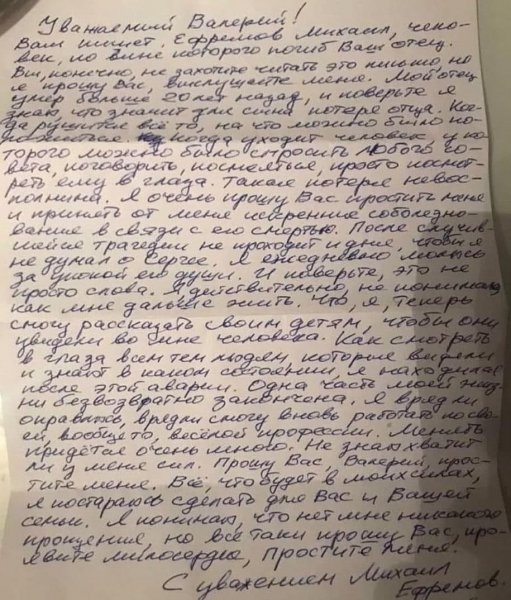 Уважаемый Валерий!
Вам пишет, Ефремов Михаил, чело-
век, по вине которого погиб Ваш отец.
Вы, конечно, не захотите читать это письмо, но
я прошу Вас, выслушайте меня. Мой отец
умер больше 20 лет назад, и поверьте я
знаю, что значит для сына потеря отца. Ког-
да рушится всё то, на что можно было по-
когда уходит человек, у ко-
торого можно было спросить любого со-
вета, поговорить, посмеяться, просто посмот-
реть ему в глаза. Такая потеря невос-
полнима. Я очень прошу Вас простить меня
и принять от меня искренние соболезно-
вание в связи с его смертью. После случив-
шейся трагедии не проходит и дня, чтобы я
не думал о Сергее. Я ежедневно молюсь
за упокой его души. И поверьте, это не
просто слова. Я действительно, не понимаю,
как мне дальше жить. Что, я, теперь
смогу рассказать своим детям, чтобы они
увидели во мне человека. Как смотреть
в глаза всем тем людям, которые видели
и знают в каком состоянии, я находился
после этой аварии. Одна часть моей жиз-
ни безвозвратно закончена. Я вряд ли
оправлюсь, вряд ли смогу вновь работать по сво-
ей, вообще то, весёлой профессии. Менять
придётся очень много. Не знаю хватит
ли у меня сил. Прошу Вас, Валерий, прос-
тите меня. Всё, что будет в моих силах,
я постараюсь сделать для Вас и Вашей
семьи. Я понимаю, что нет мне никакого
прощения, но всё таки прошу Вас, про-
явите милосердие, простите меня.
С уважением Михаил
Ефремов.